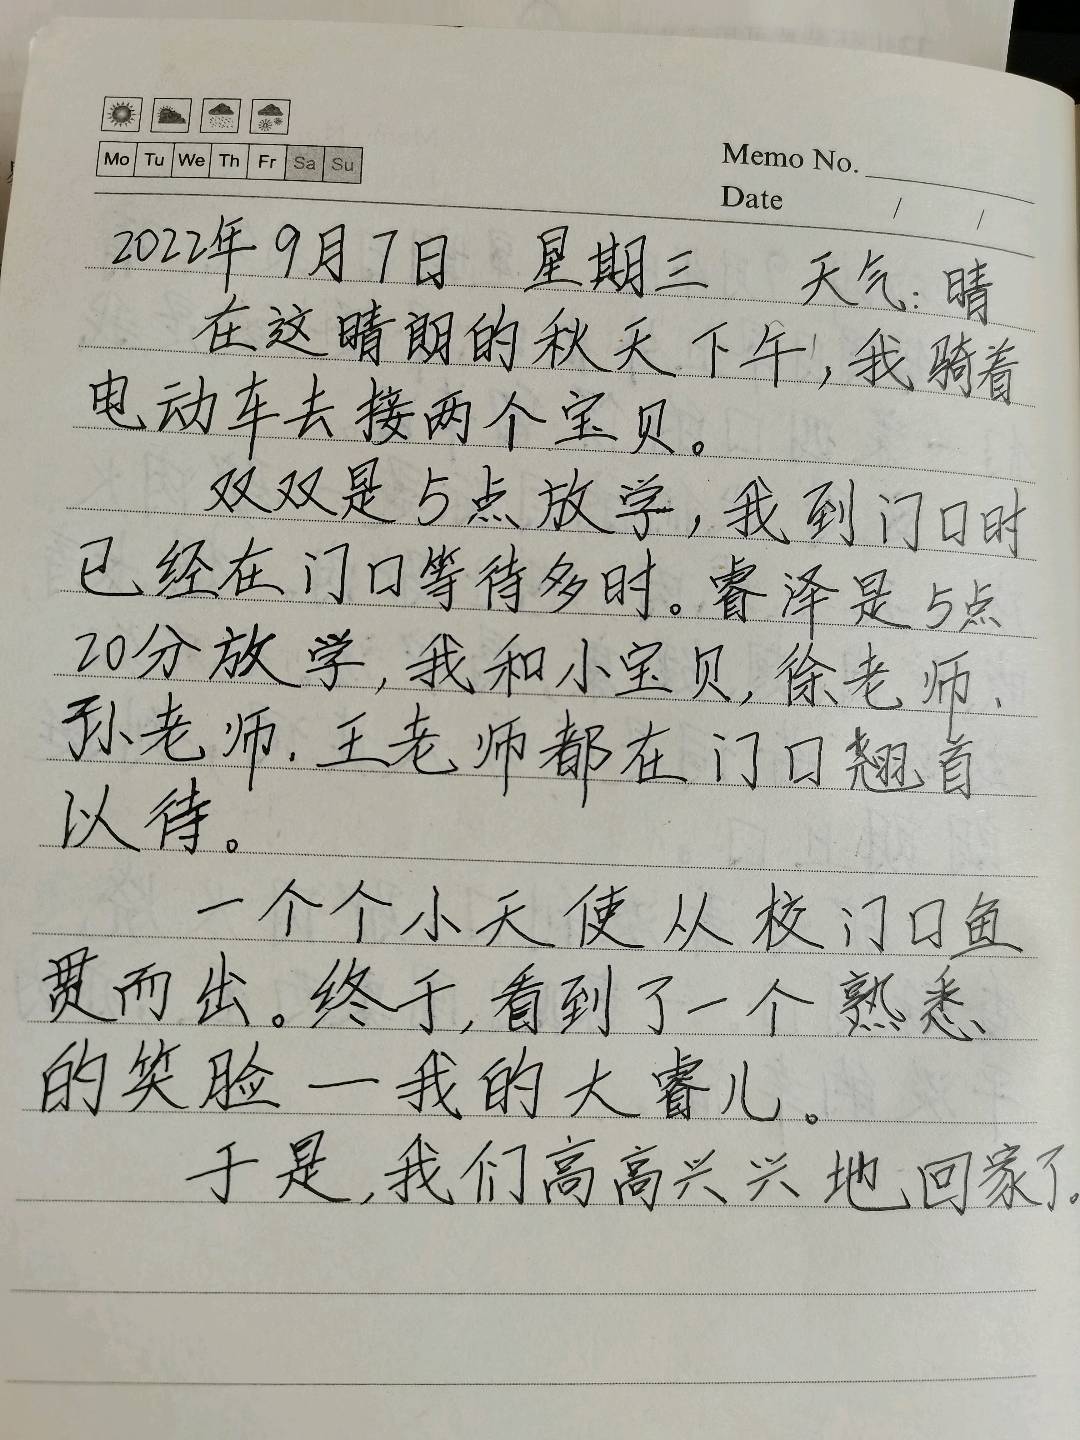 Mo Tu We Th Fr Sa Su
Memo No.
Date / /
2022年9月7日 星期三 天气:晴
在这晴朗的秋天下午,我骑着
电动车去接两个宝贝。
双双是5点放学,我到门口时
已经在门口等待多时。睿泽是5点
20分放学,我和小宝贝,徐老师、
孙老师.王老师都在门口翘首
以待。
一个个小天使从校门口鱼
贯而出。终于,看到了一个熟悉
的笑脸—我的大睿儿。
于是,我们高高兴兴地回家了。